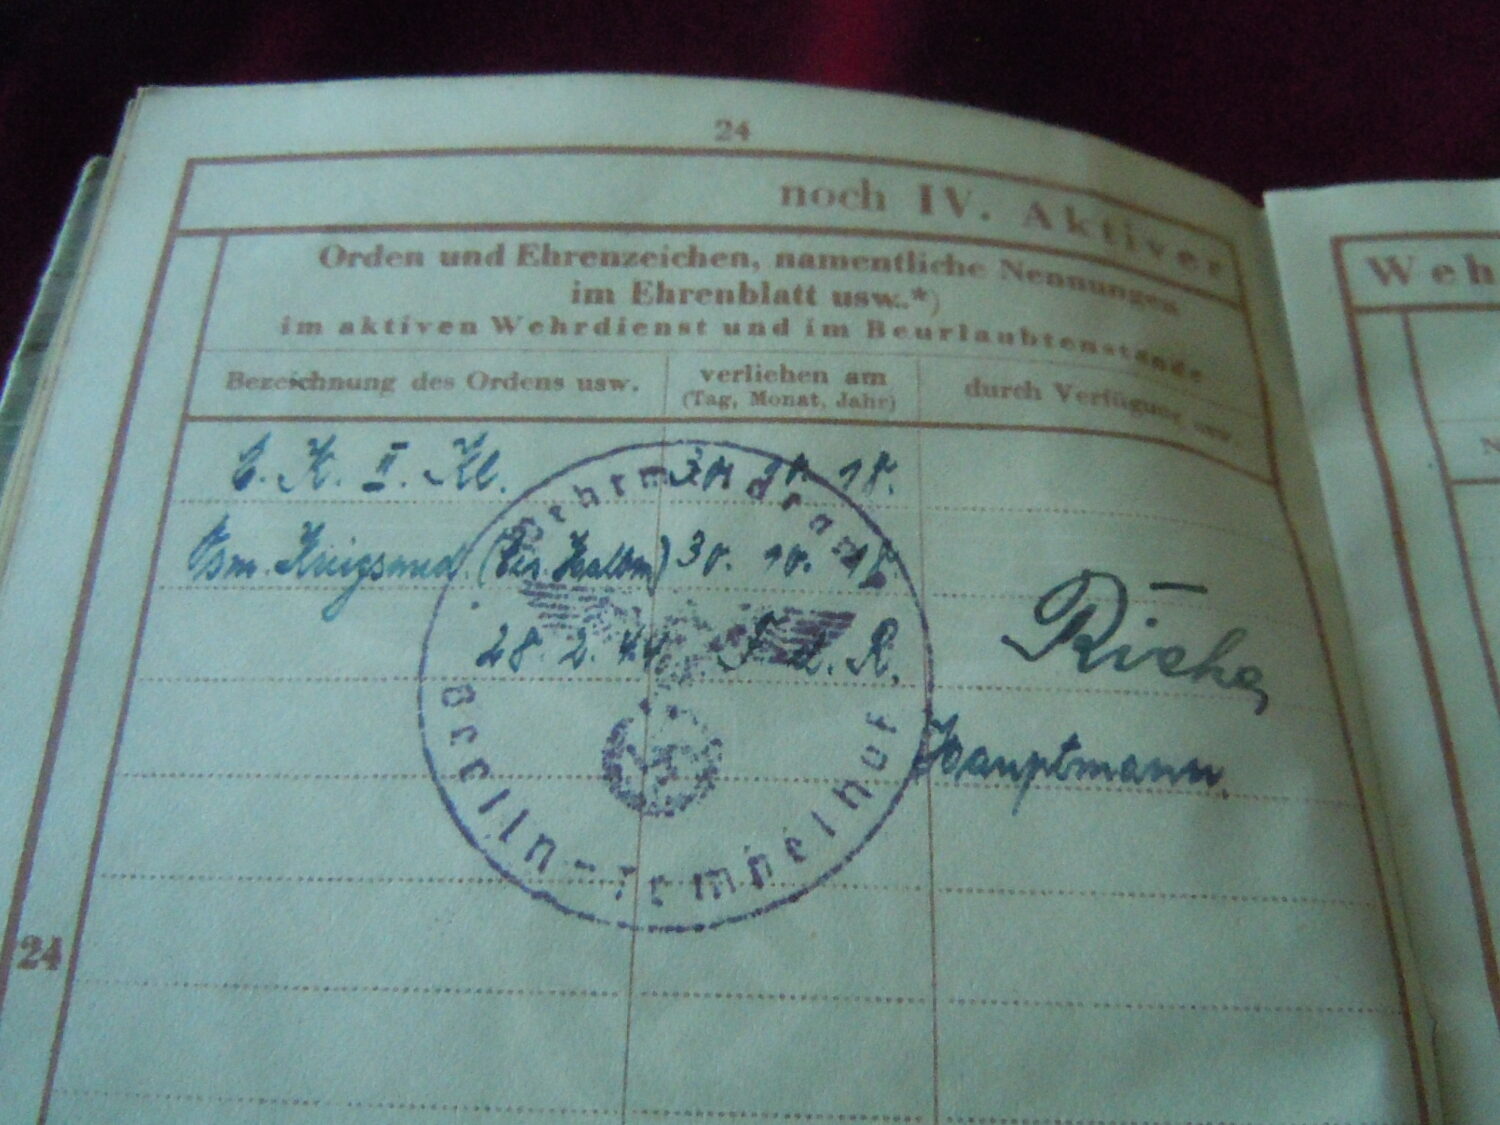 24
noch IV. Aktiver
Orden und Ehrenzeichen, namentliche Nennungen
im Ehrenblatt usw.*)
im aktiven Wehrdienst und im Beurlaubtenstande
Bezeichnung des Ordens usw.
verliehen am
(Tag, Monat, Jahr)
durch Verfügung usw.
E. K. II. Kl. 30. 10. 18.
Osm. Kriegsmed. (Eis. Halbm) 30. 10. 18.
28. 2. 44 F. d. R.
Hauptmann.
Berlin-Tempelhof
24
Weh